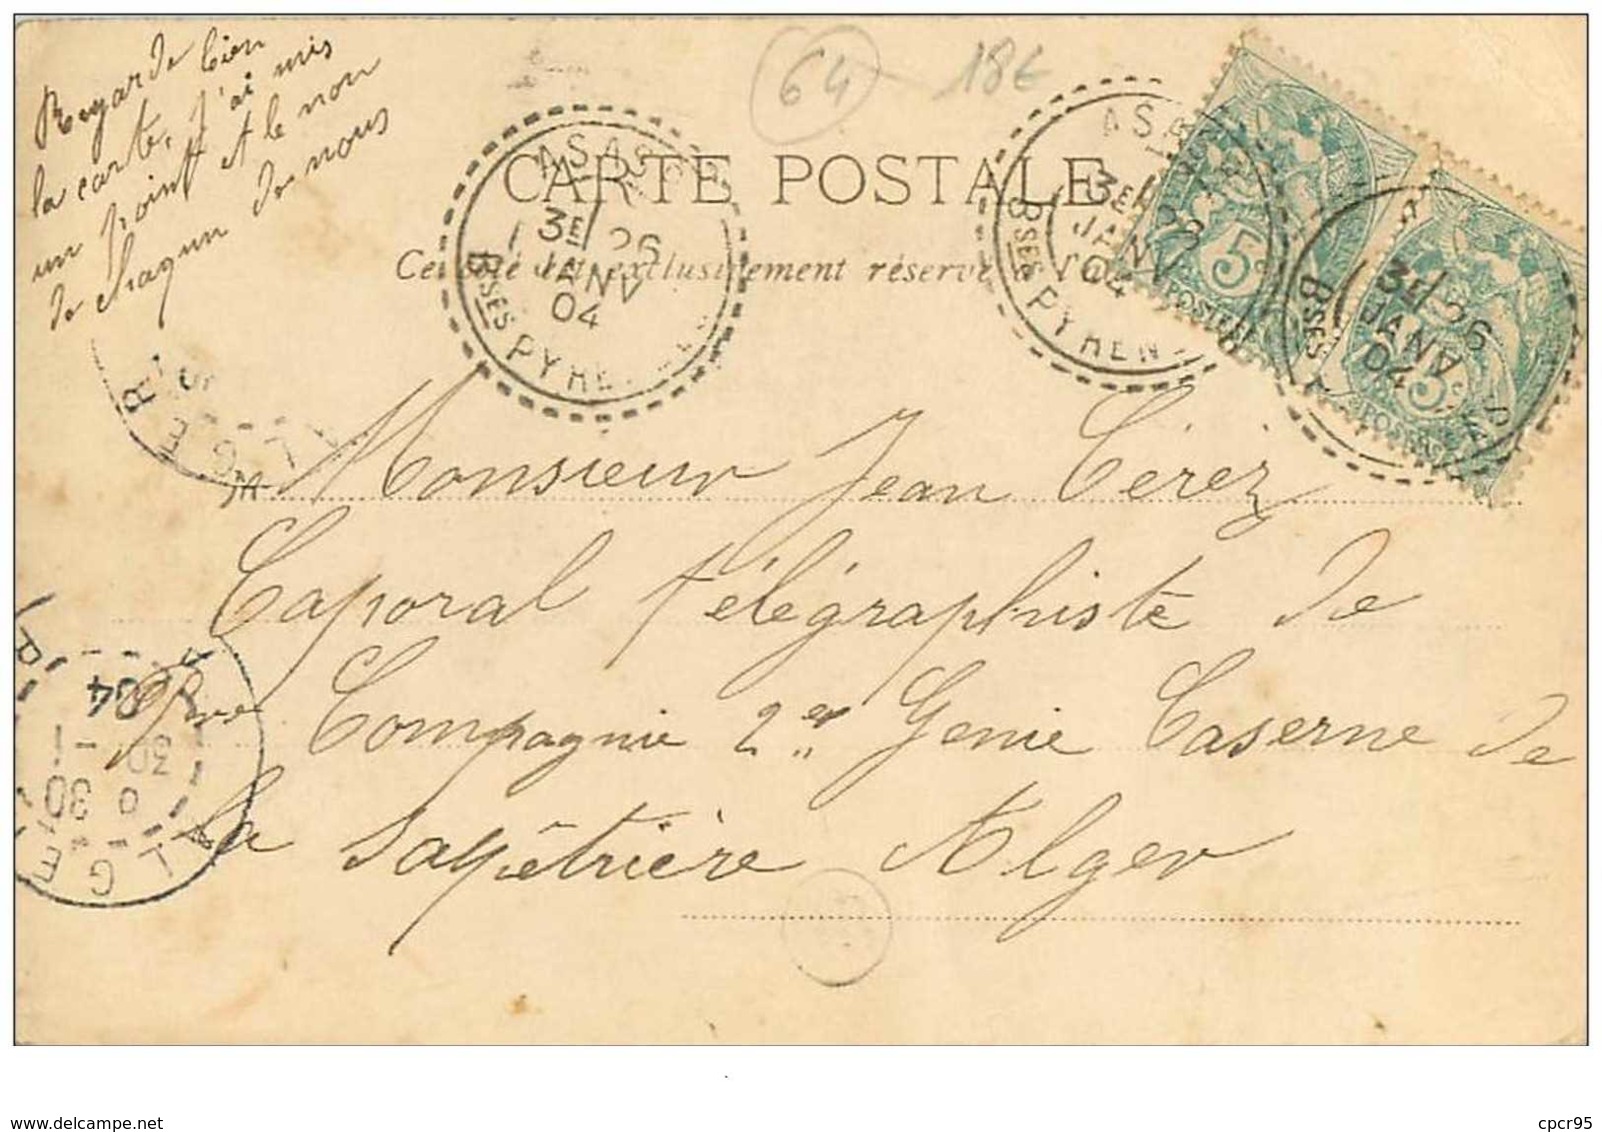 Regarde bien
la carte, j'ai mis
un point et le nom
de chaqun de nous
64 18€
CARTE POSTALE
Ce côté est exclusivement réservé à l'a
ASAS
3E/ 26
JANV
04
BSSES PYRENEES
ASA
3E/
JANV
04
BSSES PYREN
3E/ 26
JANV
04
BSSES
5c
POSTES
5c
POSTES
ALGER
M Monsieur Jean Cérèz
Caporal télégraphiste de
1ère Compagnie 2e Génie Caserne de
la Salpêtrière Alger
ALGER
0 30
30 -1
04
www.delcampe.net
cpcr95